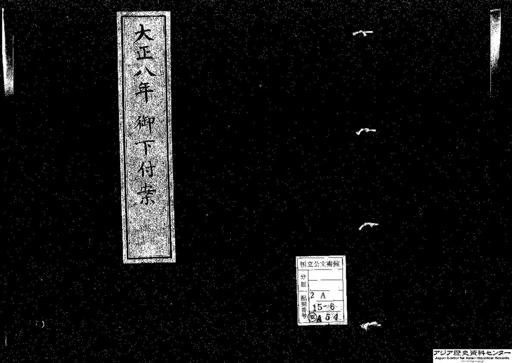 大正八年 御下付案
国立公文書館
分類
配架番号
2 A
15-6
A 54
アジア歴史資料センター
Japan Center for Asian Historical Records